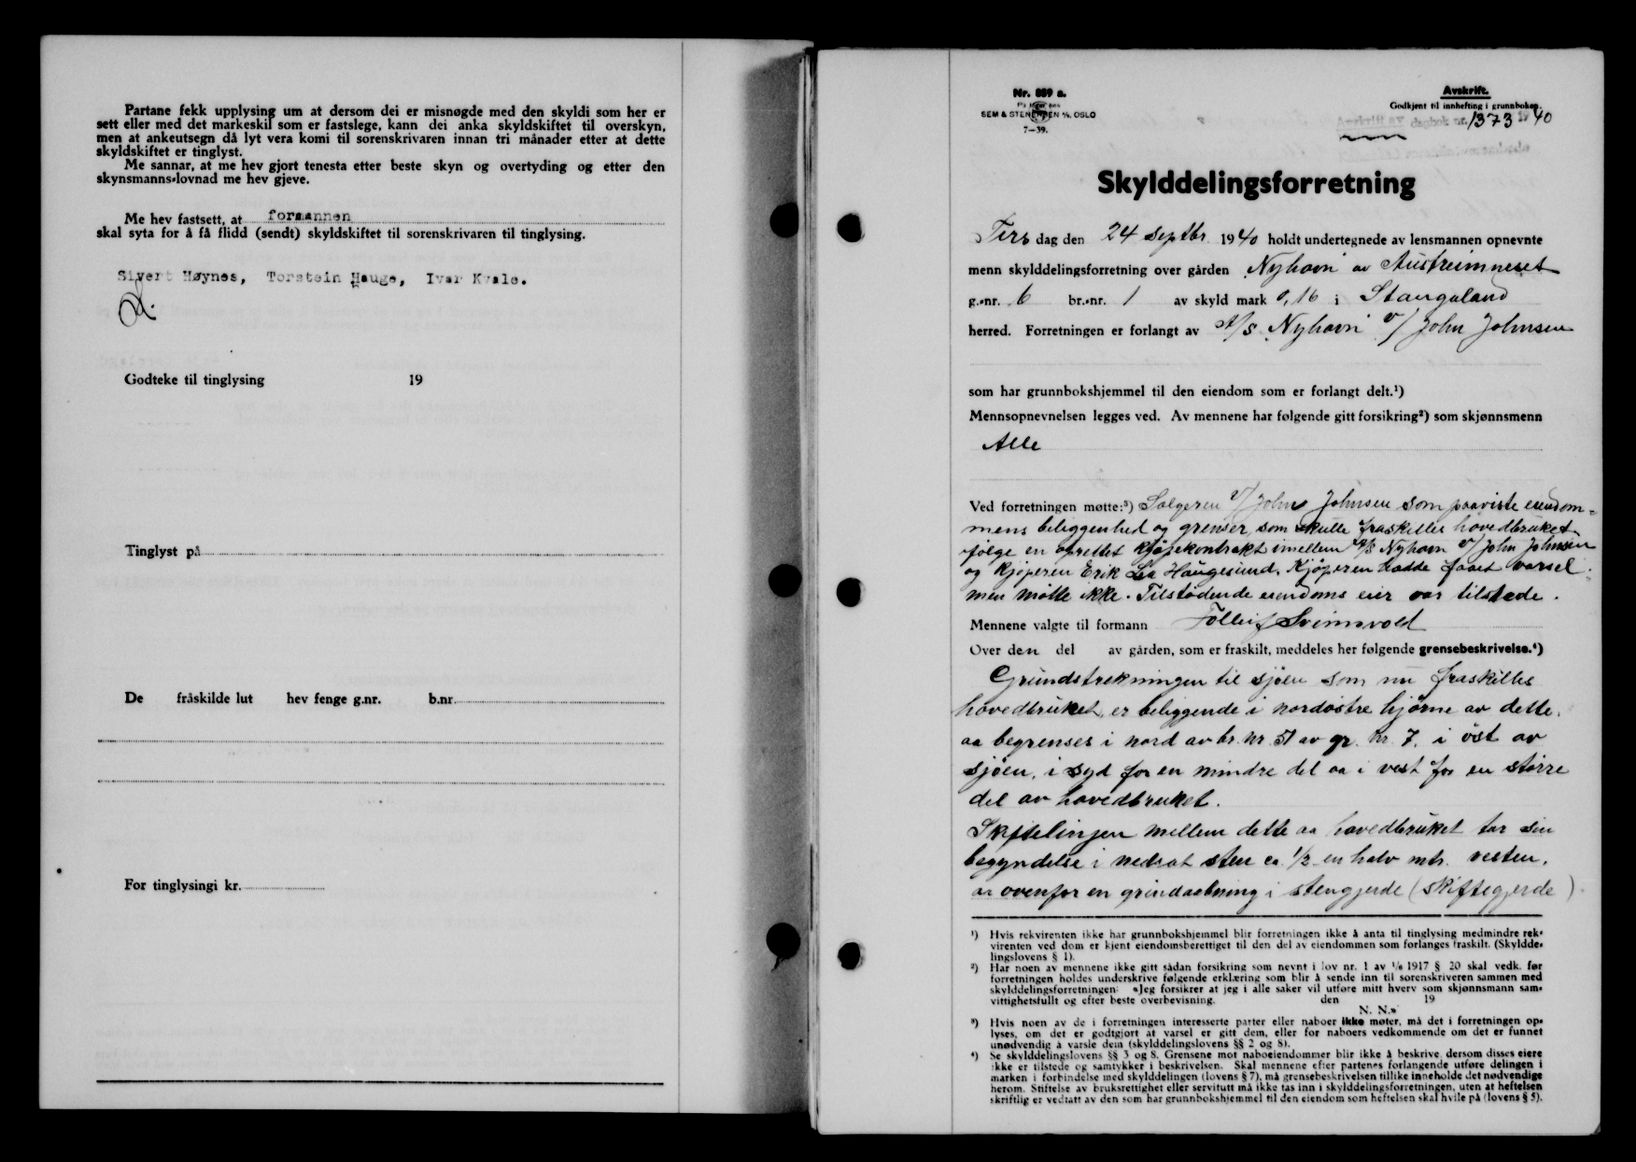 Partane fekk upplysing um at dersom dei er misnøgde med den skyldi som her er
sett eller med det markeskil som er fastslege, kann dei anka skyldskiftet til overskyn,
men at ankeutsegn då lyt vera komi til sorenskrivaren innan tri månader etter at dette
skyldskiftet er tinglyst.
Me sannar, at me hev gjort tenesta etter beste skyn og overtyding og etter den
skynsmanns-lovnad me hev gjeve.
Me hev fastsett, at formannen
skal syta for å få flidd (sendt) skyldskiftet til sorenskrivaren til tinglysing.
Sivert Høynes, Torstein Hauge, Ivar Kvale.
Godteke til tinglysing 19
Tinglyst på
De fråskilde lut hev fenge g.nr. b.nr.
For tinglysingi kr.
Nr. 889 a.
SEM & STENERSEN A/S, OSLO
7—39.
Avskrift.
Godkjent til innhefting i grunnboken.
1373 19 40
Skylddelingsforretning
Tirs dag den 24 septbr. 1940 holdt undertegnede av lensmannen opnevnte
menn skylddelingsforretning over gården „Nyhavn" av Austreimneset
g.-nr. 6 br.-nr. 1 av skyld mark 0,16 i Stangaland
herred. Forretningen er forlangt av A/S „Nyhavn" v/ John Johnsen
som har grunnbokshjemmel til den eiendom som er forlangt delt.¹)
Mennsopnevnelsen legges ved. Av mennene har følgende gitt forsikring²) som skjønnsmenn
Alle
Ved forretningen møtte:³) Sælgeren v/ John Johnsen som paaviste eiendom=
mens beliggenhed og grenser, som skulle fraskilles hovedbruket
ifølge en oprettet kjøpekontrakt imellem A/S Nyhavn v/ John Johnsen
og kjøperen Erik Lea Haugesund. Kjøperen hadde faaet varsel
men møtte ikke. Tilstødende eiendoms eier var tilstede.
Mennene valgte til formann Tolleif Svinsvold
Over den del av gården, som er fraskilt, meddeles her følgende grensebeskrivelse.⁴)
Grundstrekningen til sjøen som nu fraskilles
hovedbruket, er beliggende i nordøstre hjørne av dette,
aa begrenses i nord av br. nr. 51 av gr. nr. 7, i øst av
sjøen, i syd for en mindre del aa i vest for en større
del av hovedbruket.
Skiftelinjen mellem dette aa hovedbruket tar sin
begyndelse i nedsat sten ca. 1/2 en halv mtr. vesten,
aa ovenfor en grindaabning i stengjerde (skiftegjerde)
¹) Hvis rekvirenten ikke har grunnbokshjemmel blir forretningen ikke å anta til tinglysing medmindre rek-
virenten ved dom er kjent eiendomsberettiget til den del av eiendommen som forlanges fraskilt. (Skyldde-
lingslovens § 1).
²) Har noen av mennene ikke gitt sådan forsikring som nevnt i lov nr. 1 av 1/6 1917 § 20 skal vedk. før
forretningen holdes underskrive følgende erklæring som blir å sende inn til sorenskriveren sammen med
skylddelingsforretningen: «Jeg forsikrer at jeg i alle saker vil utføre mitt hverv som skjønnsmann sam-
vittighetsfullt og efter beste overbevisning. den 19
N. N.»
³) Hvis noen av de i forretningen interesserte parter eller naboer ikke møter, må det i forretningen op-
lyses, om det er godtgjort at varsel er gitt dem, eller for naboers vedkommende om det er funnet
unødvendig å varsle dem (skylddelingslovens §§ 2 og 8).
⁴) Se skylddelingslovens §§ 3 og 8. Grensene mot naboeiendommer blir ikke å beskrive, dersom disses eiere
ikke er tilstede og samtykker i beskrivelsen. Skal mennene efter partenes forlangende utføre delingen i
marken i forbindelse med skylddelingen (lovens § 7), må grensebeskrivelsen tillike inneholde det nødvendige
herom. Stiftelse av bruksrettighet eller servitutt må ikke tas inn i skylddelingsforretningen, uten at heftelsen
skriftlig er vedtatt av den som har grunnbokshjemmel til den eiendom som heftelsen skal hvile på (lovens § 5).